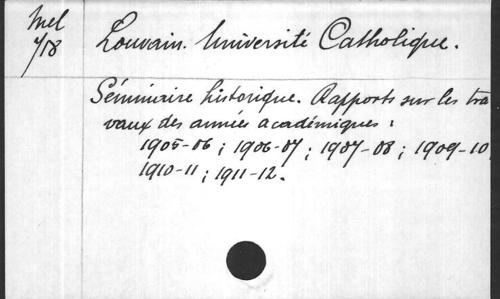 Mel
7/18
Louvain. Université Catholique.
Séminaire historique. Rapports sur les tra
vaux des années académiques :
1905-06 ; 1906-07 ; 1907-08 ; 1909-10
1910-11 ; 1911-12.